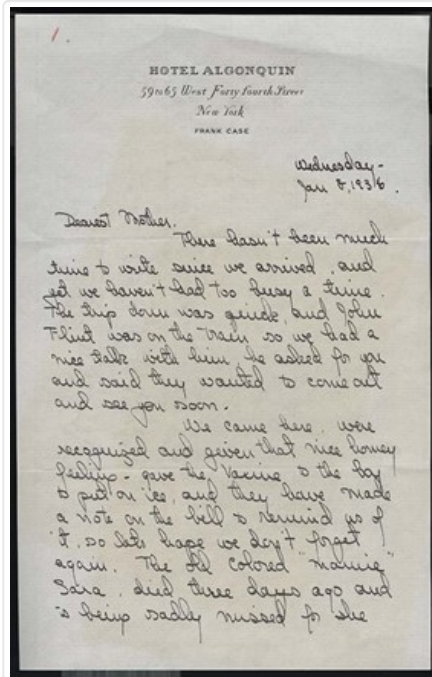 1.
HOTEL ALGONQUIN
59 to 65 West Forty fourth Street
New York
FRANK CASE
Wednesday-
Jan 8, 1936.
Dearest Mother.
There hasn't been much
time to write since we arrived, and
yet we haven't had too busy a time.
The trip down was quick, and John
Flint was on the train so we had a
nice talk with him, he asked for you
and said they wanted to come out
and see you soon.
We came here, were
recognized and given that nice homey
feeling - gave the vaccine to the boy
to put on ice, and they have made
a note on the bill to remind us of
it, so lets hope we don't forget
again. The old colored "mamie"
Sara, died three days ago and
is being sadly missed for she